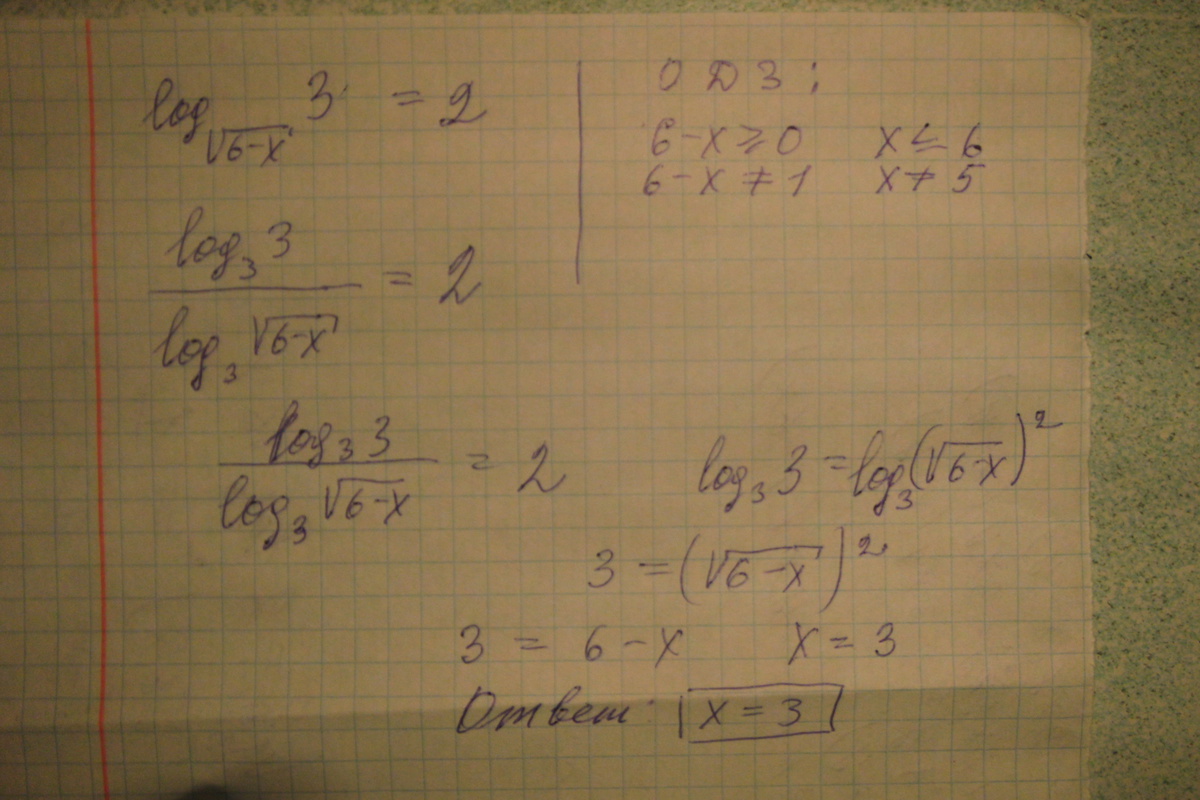 log_{√(6-x)} 3 = 2
ОДЗ:
6-x ≥ 0 x ≤ 6
6-x ≠ 1 x ≠ 5
log₃ 3 / log₃ √(6-x) = 2
log₃ 3 / log₃ √(6-x) = 2
log₃ 3 = log₃ (√(6-x))²
3 = (√(6-x))²
3 = 6-x x = 3
Ответ: x = 3